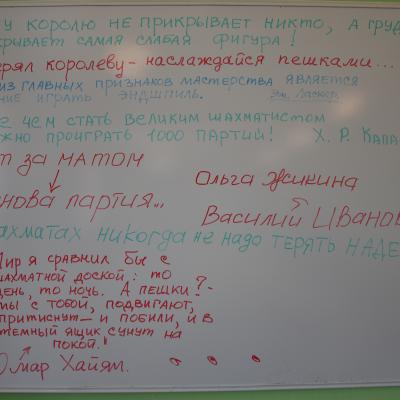 у королю не прикрывает никто, а груд
крывает самая слабая фигура!
ерял королеву - наслаждайся пешками...
из главных признаков мастерства является
ние играть эндшпиль. Эм. Ласкер.
е чем стать великим шахматистом
жно проиграть 1000 партий! Х. Р. Капа
т за матом
Ольга Жикина
нова партия...
Василий Иванов
ахматах никогда не надо терять наде
Мир я сравнил бы с
шахматной доской: то
день, то ночь. А пешки? -
мы с тобой, подвигают,
притиснут - и побили, и в
темный ящик сунут на
покой."
Омар Хайям.